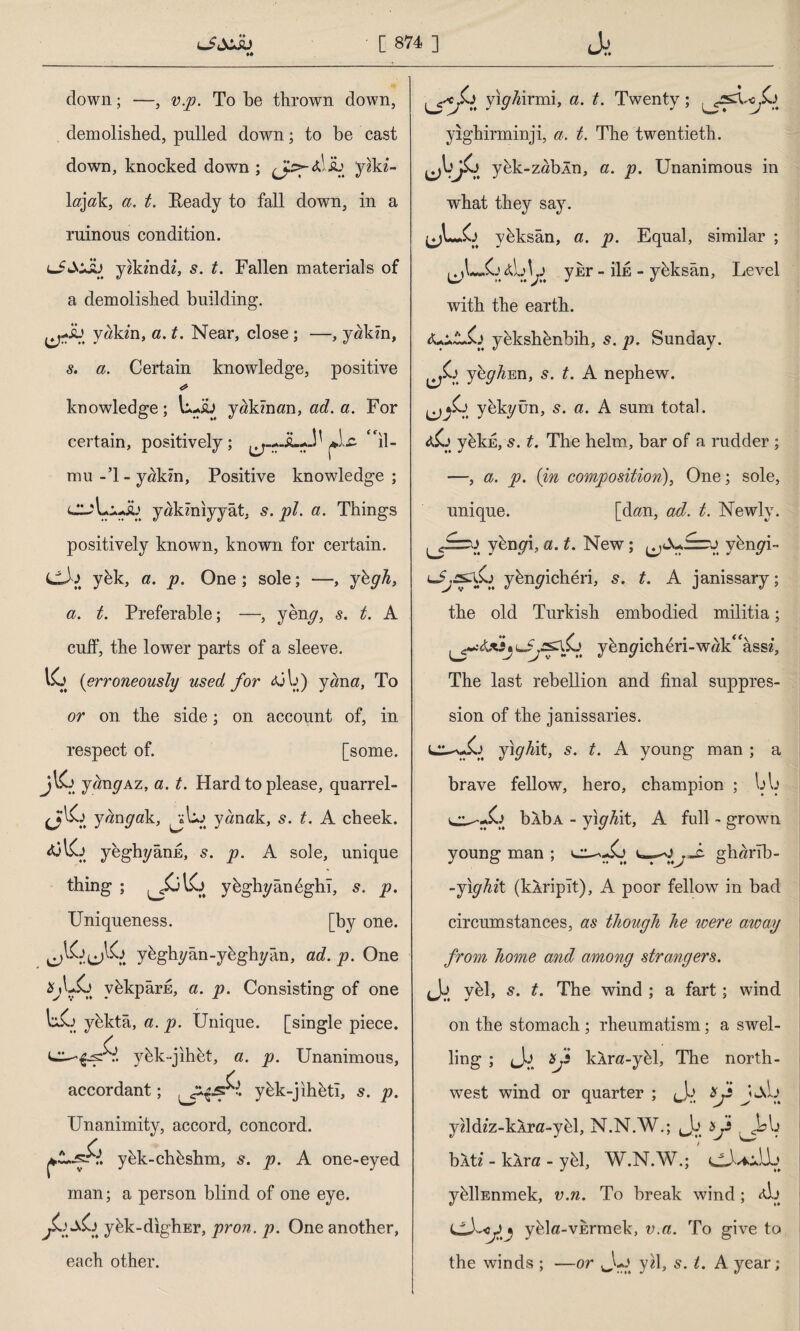 يقندى [ 874 ] يل
down; —, v.p. To be thrown down,
demolished, pulled down; to be cast
down, knocked down ; يقله‌جق yìki-
lajak, a. t. Ready to fall down, in a
ruinous condition.
يقندى yìkindi, s. t. Fallen materials of
a demolished building.
يقين yakin, a. t. Near, close ; —, yakīn,
s. a. Certain knowledge, positive
knowledge ; يقينا yakīnan, ad. a. For
certain, positively ; علم اليقين ʿil-
mu -'l - yakīn, Positive knowledge ;
يقينيات yakīniyyāt, s. pl. a. Things
positively known, known for certain.
يك yèk, a. p. One ; sole ; —, yègh,
a. t. Preferable ; —, yèng, s. t. A
cuff, the lower parts of a sleeve.
يكا (erroneously used for يانه) yana, To
or on the side ; on account of, in
respect of. [some.
يكاز yangAz, a. t. Hard to please, quarrel-
يكاق yangak, يناق yanak, s. t. A cheek.
يكانه yèghyānE, s. p. A sole, unique
thing ; يكانكى yèghyānéghī, s. p.
Uniqueness. [by one.
يكان يكان yèghyān-yèghyān, ad. p. One
يكپاره yèkpārE, a. p. Consisting of one
يكتا yèktā, a. p. Unique. [single piece.
يكجهت yèk-jihèt, a. p. Unanimous,
accordant ; يكجهتى yèk-jihètī, s. p.
Unanimity, accord, concord.
يكچشم yèk-chèshm, s. p. A one-eyed
man ; a person blind of one eye.
يكديكر yèk-dìghEr, pron. p. One another,
each other.
يكرمى yìghirmi, a. t. Twenty ; يكرمنجى
yìghirminji, a. t. The twentieth.
يكزبان yèk-zabān, a. p. Unanimous in
what they say.
يكسان yèksān, a. p. Equal, similar ;
يرايله يكسان yEr - ilE - yèksān, Level
with the earth.
يكشنبه yèkshènbih, s. p. Sunday.
يكن yèghEn, s. t. A nephew.
يكون yèkyūn, s. a. A sum total.
يكه yèkE, s. t. The helm, bar of a rudder ;
—, a. p. (in composition), One ; sole,
unique. [dan, ad. t. Newly.
يكى yèngi, a. t. New ; يكيدن yèngi-
يكيچرى yèngichéri, s. t. A janissary ;
the old Turkish embodied militia ;
يكيچرى وقعه‌سى yèngichéri-wakʿassi,
The last rebellion and final suppres-
sion of the janissaries.
يكيت yìghit, s. t. A young man ; a
brave fellow, hero, champion ; بابا
يكيت bAbA - yìghit, A full - grown
young man ; غريب يكيت gharīb-
-yìghit (kAripīt), A poor fellow in bad
circumstances, as though he were away
from home and among strangers.
يل yèl, s. t. The wind ; a fart ; wind
on the stomach ; rheumatism ; a swel-
ling ; قره يل kAra-yèl, The north-
west wind or quarter ; يلدز قره يل
yìldiz-kAra-yèl, N.N.W.; باطى قره يل
bAti - kAra - yèl, W.N.W.; يللنمك
yèllEnmek, v.n. To break wind ; يله
ويرمك yèla-vErmek, v.a. To give to
the winds ; —or ييل yìl, s. t. A year ;